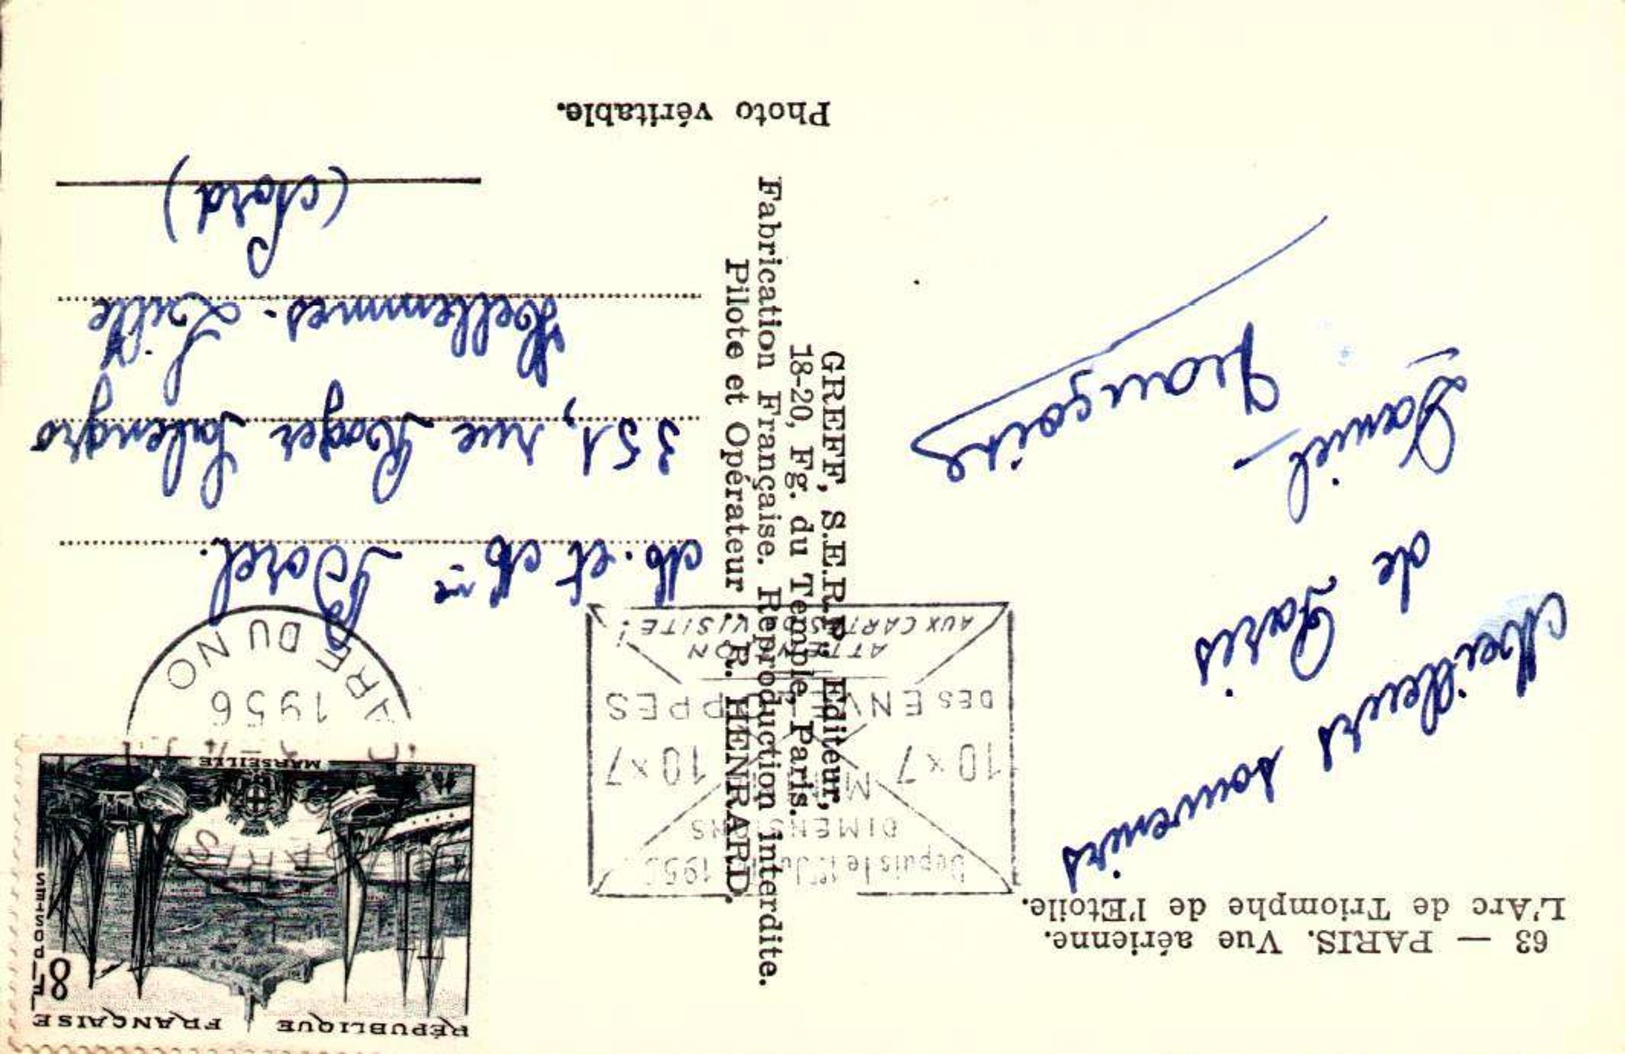 63 — PARIS. Vue aérienne.
L'Arc de Triomphe de l'Etoile.
Meilleurs souvenirs
de Paris
Daniel -
Françoise
GREFF, S.E.R.P. Editeur,
18-20, Fg. du Temple, Paris.
Fabrication Française. Reproduction interdite.
Pilote et Opérateur : R. HENRARD.
Photo véritable.
RÉPUBLIQUE FRANÇAISE
8F
POSTES
MARSEILLE
PARIS
GARE DU NO
1956
Depuis le 1er Ju 195
DIMENSIONS
MIN
10×7 10×7
DES ENVELOPPES
ATTENTION
AUX CARTES DE VISITE !
M. et Mme Borel.
351, rue Roger Salengro
Hellemmes - Lille
(Nord)